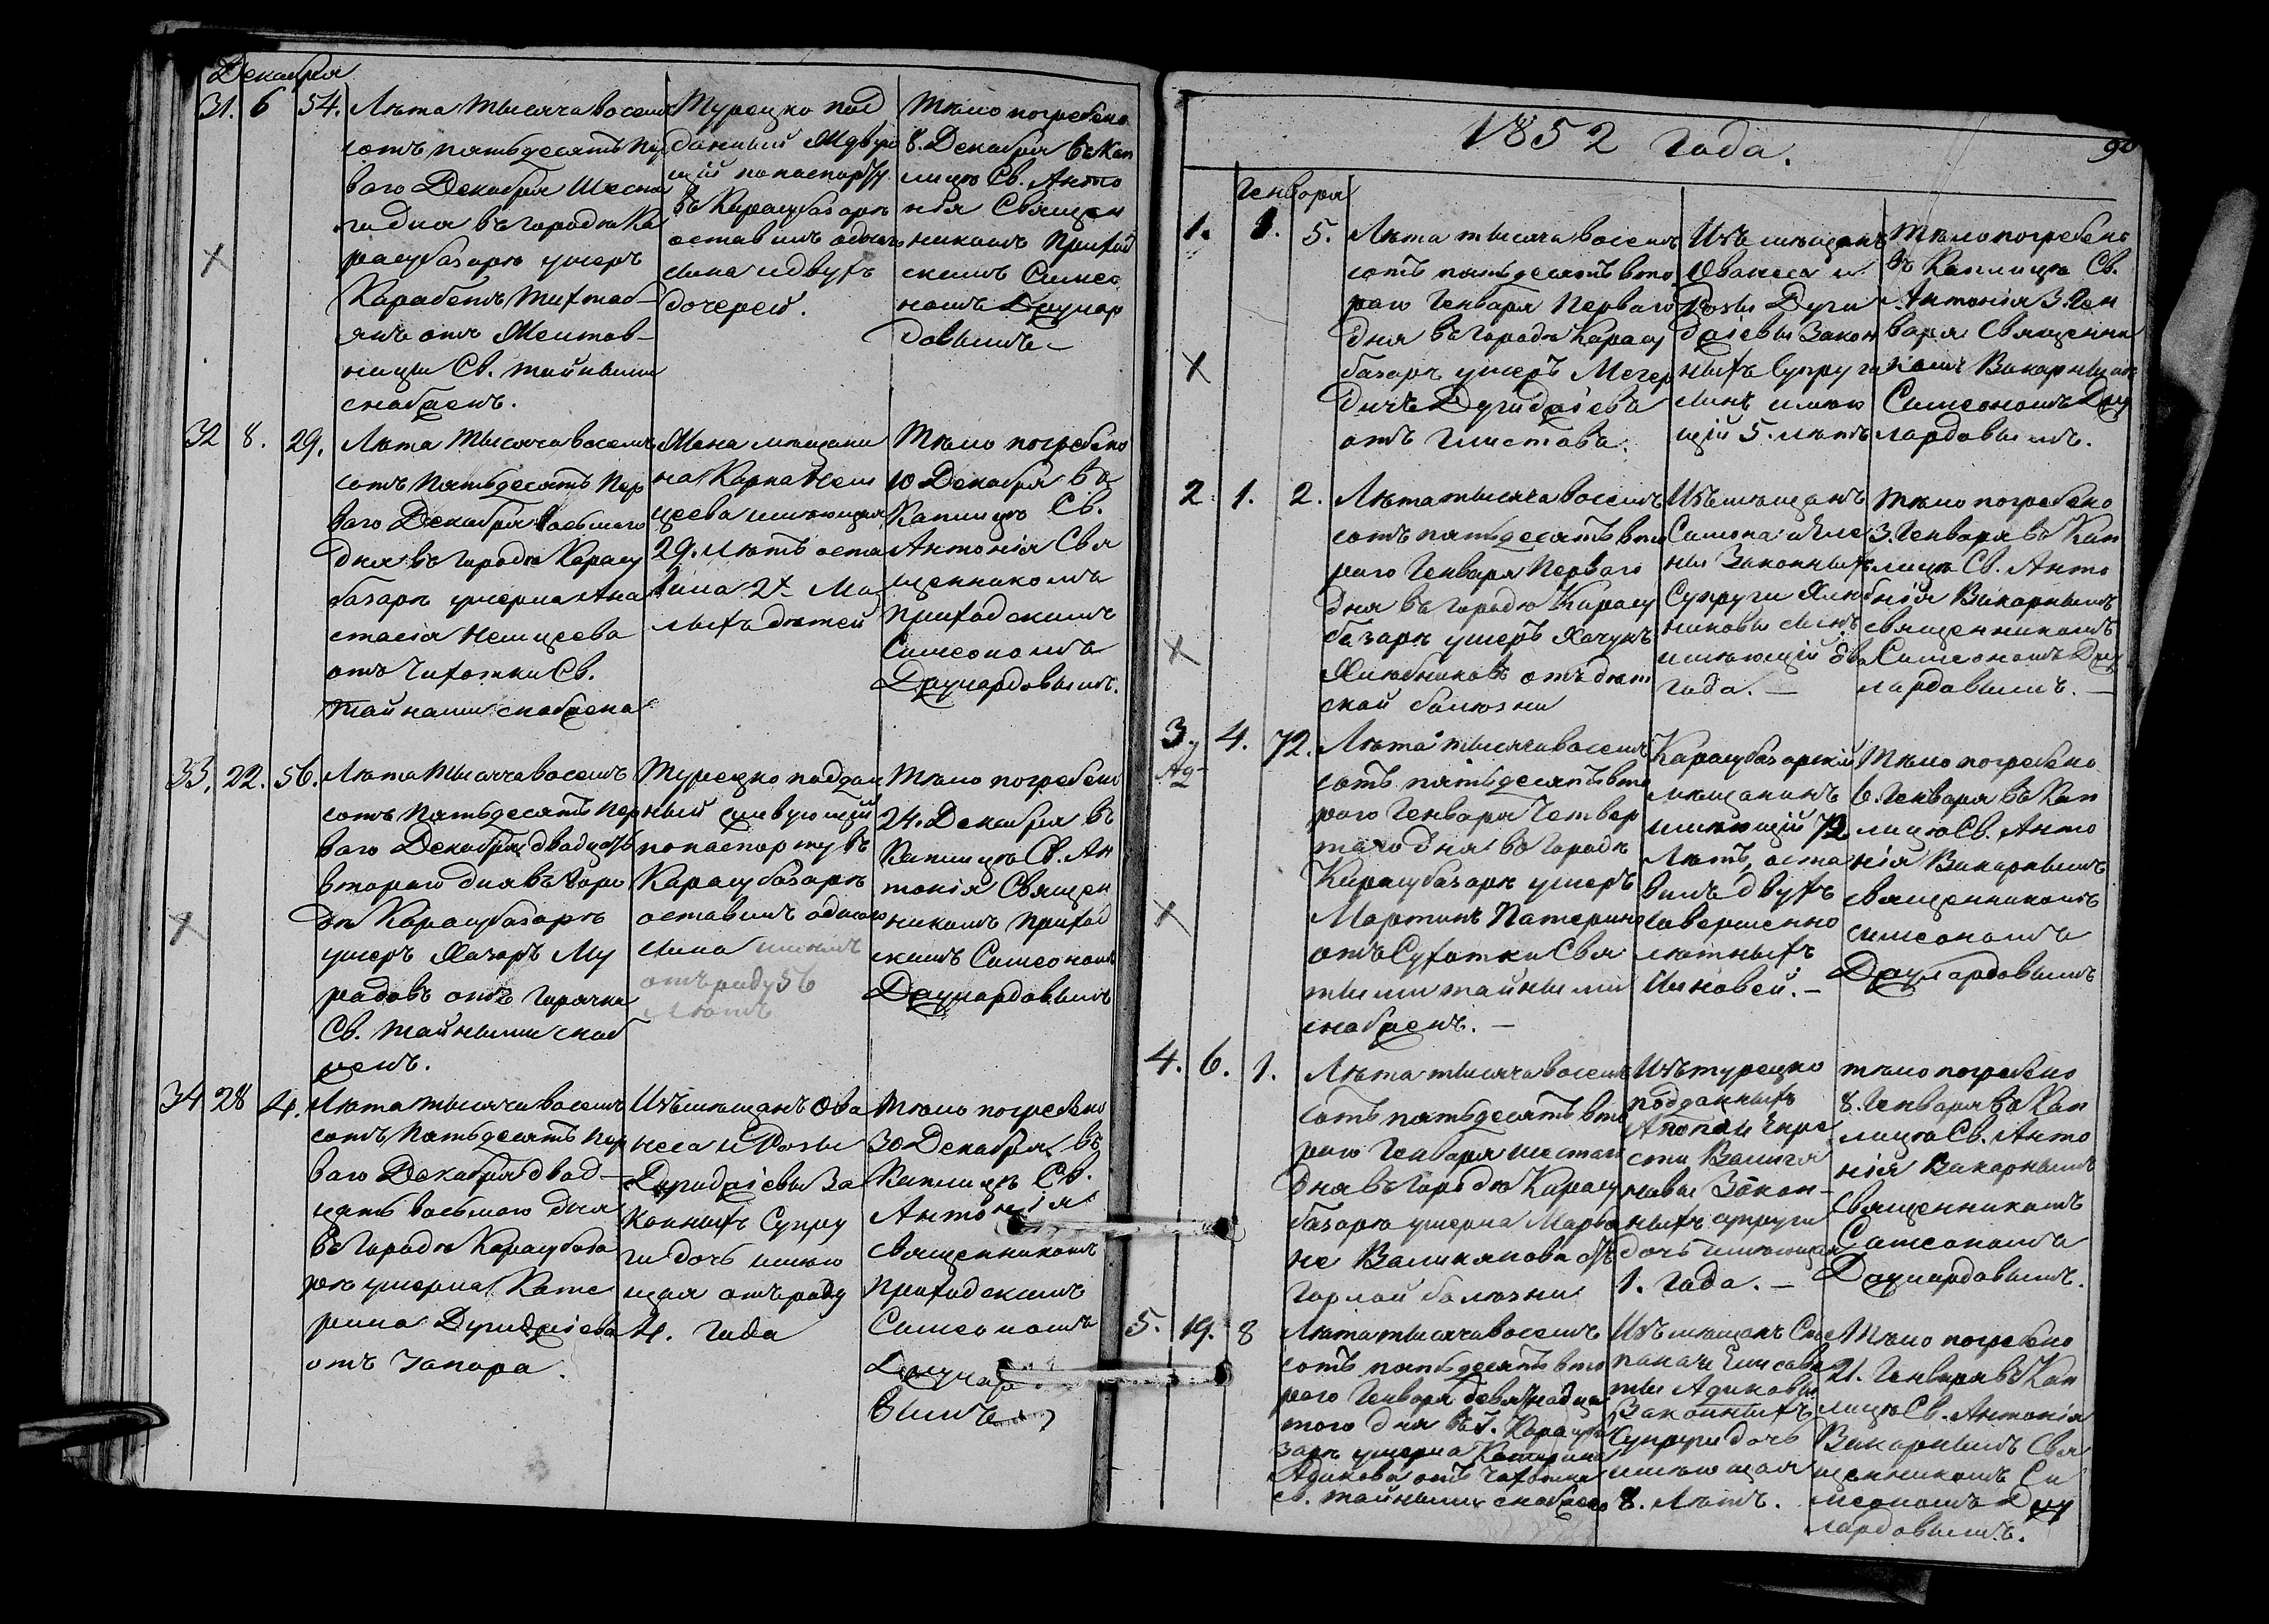 Декабря
31. 6 54. Лѣта тысяча восемь
сотъ пятьдесятъ пер
ваго Декабря шеста
го дня въ городѣ Ка
расубазарѣ умеръ
Карабетъ
янъ отъ
Св. тайнами
снабженъ.
Турецко под
данный
щій по паспорту
въ Карасубазарѣ
оставилъ одного
сина и двухъ
дочерей.
Тѣло погребено
8. Декабря въ Кап
лицѣ Св. Анто
нія Священ
никомъ Приход
скимъ Симео
номъ Даулар
довымъ
32 8. 29. Лѣта тысяча восемь
сотъ пятьдесятъ пер
ваго Декабря восьмаго
дня въ городѣ Карасу
базарѣ умерла Ана
стасія Немцева
отъ чихотки Св.
тайнами снабжена
Жена мѣщани
на Карпа Нем
цева имеющая
29. лѣтъ оста
вила 2х Ма
лыхъ дѣтей
Тѣло погребено
10 Декабря въ
Каплицѣ Св.
Антонія Свя
щенникомъ
Приходскимъ
Симеономъ
Даулардовымъ.
33. 22. 56. Лѣта тысяча восемь
сотъ пятьдесятъ пер
ваго Декабря двадцать
втораго дня въ Горо
дѣ Карасубазарѣ
умеръ Хачеръ Му
радовъ отъ Горячки
Св. тайными снаб
женъ.
Турецко поддан
ный живующій
по паспорту въ
Карасубазарѣ
оставилъ одного
сина имелъ
отъ роду 56
лѣтъ
Тѣло погребено
24. Декабря въ
Каплицѣ Св. Ан
тонія Священ
никомъ Приход
скимъ Симеоном
Даулардовымъ
34 28 4. Лѣта тысяча восемь
сотъ пятьдесятъ пер
ваго Декабря двад
цать восьмаго дня
въ Городѣ Карасубаза
рѣ умерла Кате
рина Дугиджіева
отъ запора.
Изъ мѣщанъ Ова
неса и Розы
Дугиджіевы За
конныхъ Супру
ги дочь имею
щая отъ роду
4. года
Тѣло погребено
30 Декабря въ
Каплицѣ Св.
Антонія
священникомъ
Приходскимъ
Симеономъ
Даулардо
вымъ
1852 года.
90
Генваря
1. 1. 5. Лѣта тысяча восемь
сотъ пятьдесятъ вто
раго Генваря Перваго
дня въ городѣ Карасу
базарѣ умеръ Мегер
дичъ Дугиджіевъ
отъ глистовъ.
Изъ мѣщанъ
Ованеса и
Розы Дуги
джіевы Закон
ныхъ Супруги
синъ имею
щій 5. лѣтъ
Тѣло погребено
въ Каплицѣ Св.
Антонія 3 Ген
варя Священни
комъ Викарнымъ
Симеономъ Дау
лардовымъ.
2 1. 2. Лѣта тысяча восемь
сотъ пятьдесятъ вто
раго Генваря Перваго
дня въ городѣ Карасу
базарѣ умеръ Хачукъ
отъ дѣт
ской болѣзни
Изъ мѣщанъ
Симона и Еле
ны Законныхъ
Супруги
синъ
имеющій два
года. —
Тѣло погребено
3. Генваря въ Кап
лицѣ Св. Анто
нія Викарнымъ
священникомъ
Симеономъ Дау
лардовымъ. —
3. 4. 72. Лѣта тысяча восемь
сотъ пятьдесятъ вто
раго Генваря Четвер
таго дня въ Городѣ
Карасубазарѣ умеръ
Мартинъ Патерино
отъ Сухотки Свя
тыми тайными
снабженъ. —
Карасубазарскій
мѣщанинъ
имеющій 72
лѣтъ, оста
вилъ двухъ
совершенно
лѣтныхъ
Синовей. —
Тѣло погребено
6. Генваря въ Кап
лицѣ Св. Анто
нія Викарнымъ
священникомъ
симеономъ
Даулардовымъ
4. 6. 1. Лѣта тысяча восемь
сотъ пятьдесятъ вто
раго Генваря шестаго
дня въ Городѣ Карасу
базарѣ умерла
отъ
Горлой болѣзни
Изъ турецко
подданныхъ
Закон
ныхъ супруги
дочь имеющая
1. Года. —
тѣло погребено
8. Генваря въ Кап
лицѣ Св. Анто
нія Викарнымъ
священникомъ
Симеономъ
Даулардовымъ.
5. 19. 8 Лѣта тысяча восемь
сотъ пятьдесятъ вто
раго Генваря девятнадца
того дня въ Г. Карасуба
зарѣ умерла Катерина
Адикова отъ чахотки
св. тайными снабжена
Изъ мѣщанъ Сте
пана и Елисаве
ты Адиковы
Законныхъ
Супруги дочь
имеющая
8. лѣтъ.
Тѣло погребено
21. Генваря въ Кап
лицѣ Св. Антонія
Викарнымъ Свя
щенникомъ Си
меономъ Дау
лардовымъ.